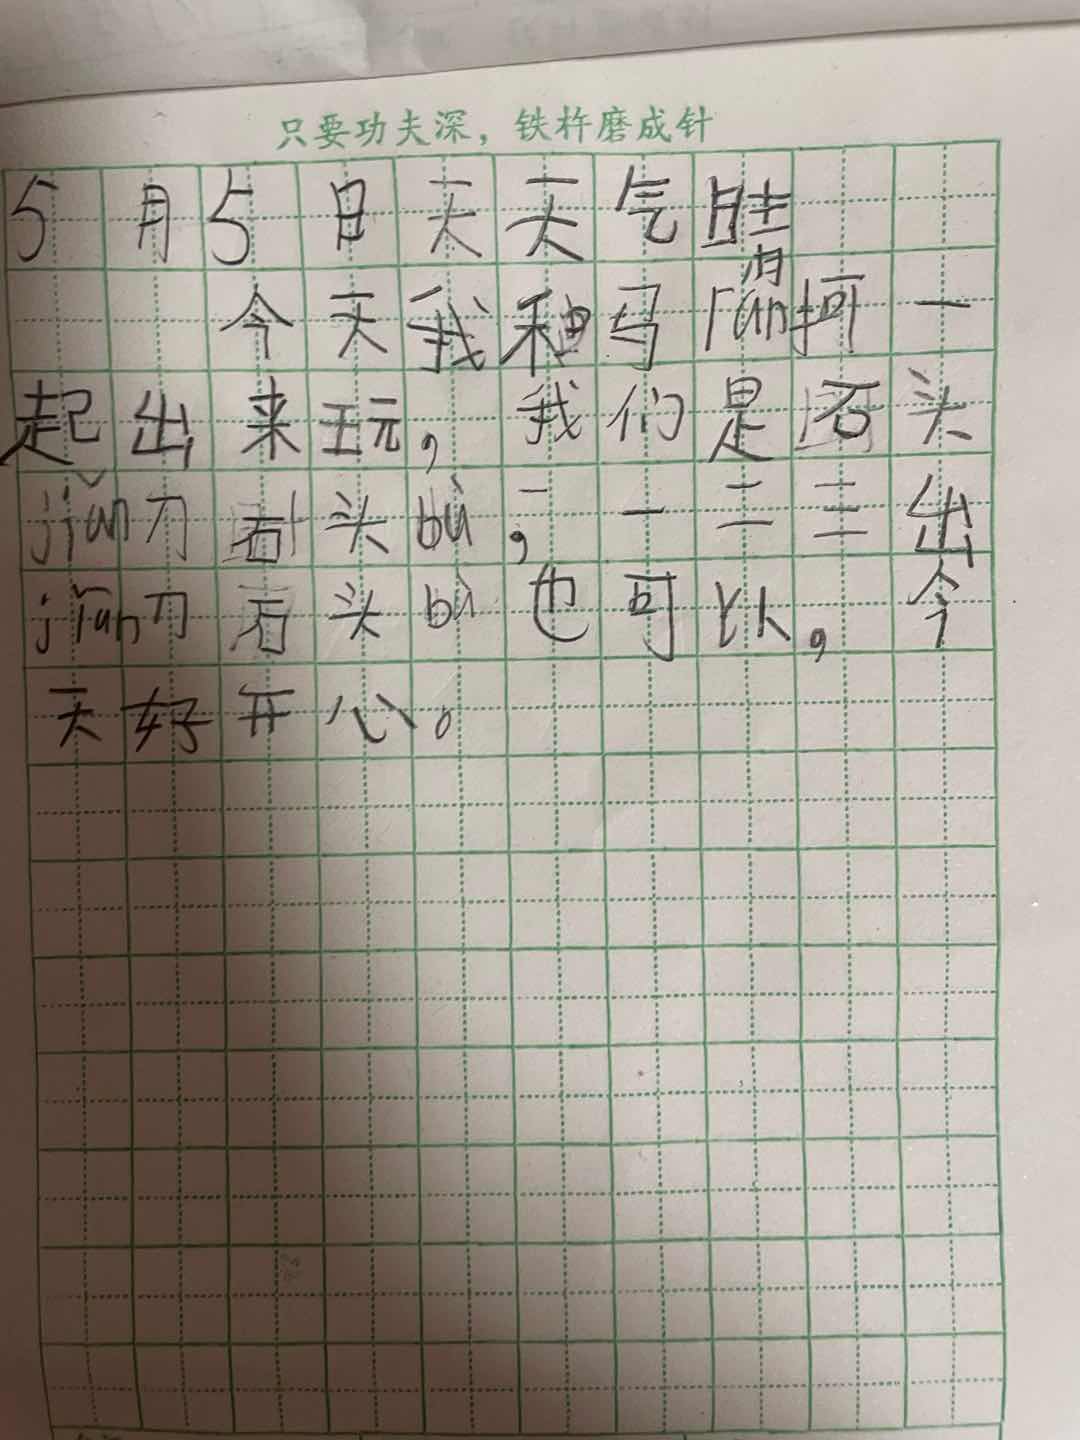 只要功夫深，铁杵磨成针
5月5日天天气晴
今天我种马rán抲一
起出来玩，我们是石头
jiǎn刀石头bù，一一二三出
jiǎn刀石头bù也可以，今
天好开心。